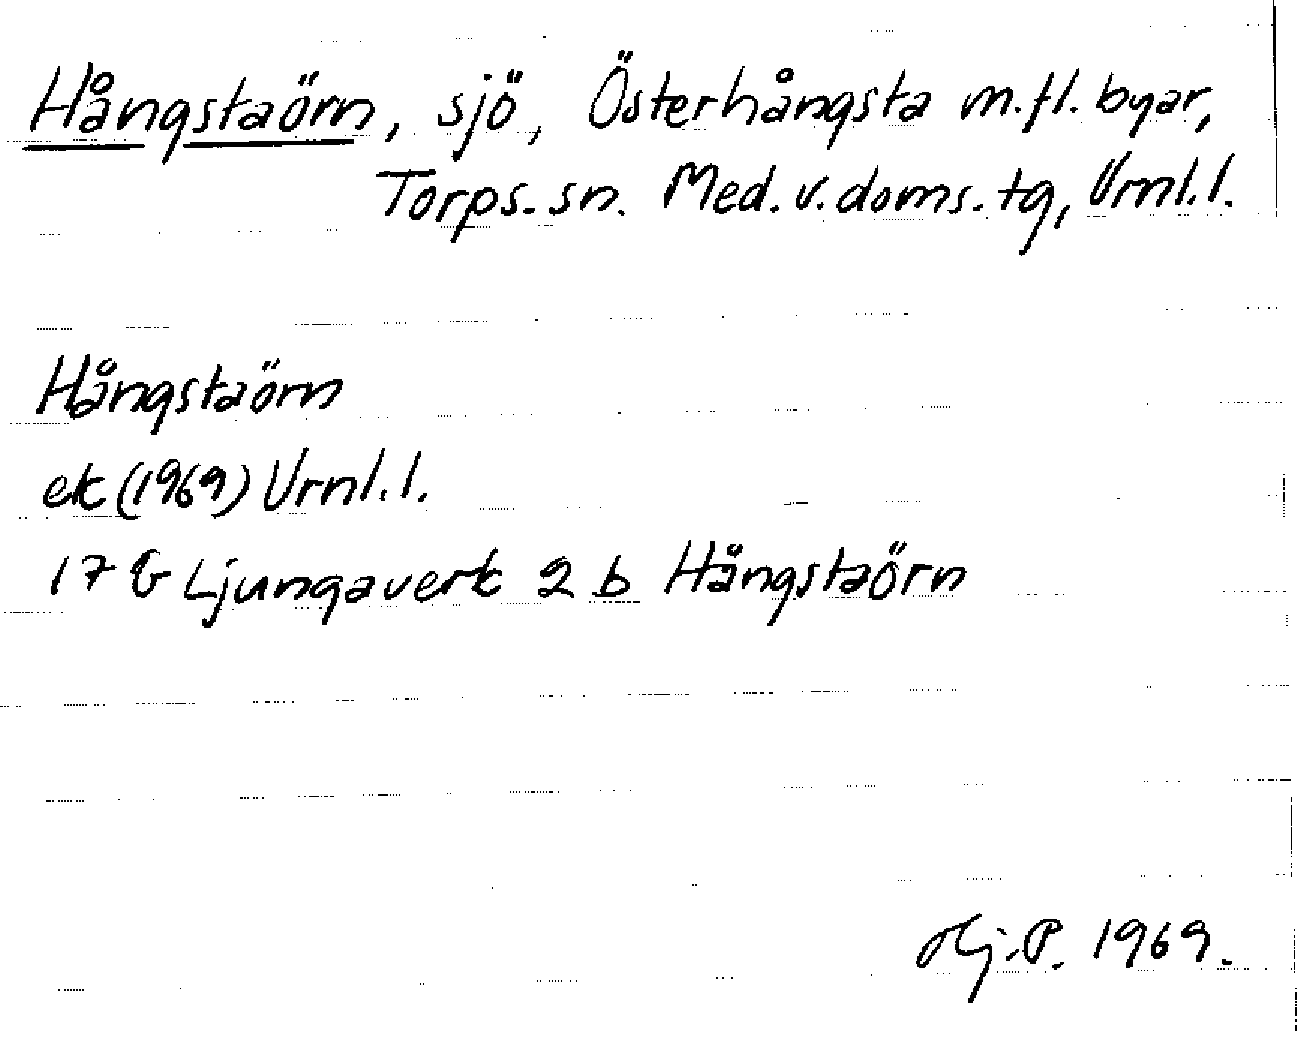 Hångstaörn, sjö, Österhångsta m.fl. byar,
Torps. sn. Med. v. doms. tg, Vrnl. l.
Hångstaörn
ek (1969) Vrnl. l.
17 G Ljungaverk 2 b Hångstaörn
Hj. P. 1969.